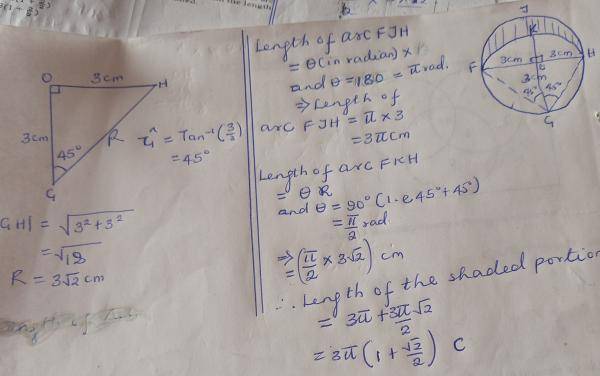 O 3cm H
3cm R
45°
G
τ₁^ = Tan⁻¹(3/3)
= 45°
GH| = √3²+3²
= √18
R = 3√2 cm
Length of arc FJH
= θ(in radian) ×
and θ = 180 = π rad.
⇒ Length of
arc FJH = π × 3
= 3π cm
Length of arc FKH
= θ R
and θ = 90° (1.e 45°+45°)
= π/2 rad
⇒ (π/2 × 3√2) cm
=
∴ Length of the shaded portion
= 3π + 3π/2 √2
= 3π(1 + √2/2) C
J
K
F 3cm 3cm H
3cm
45° 45°
G